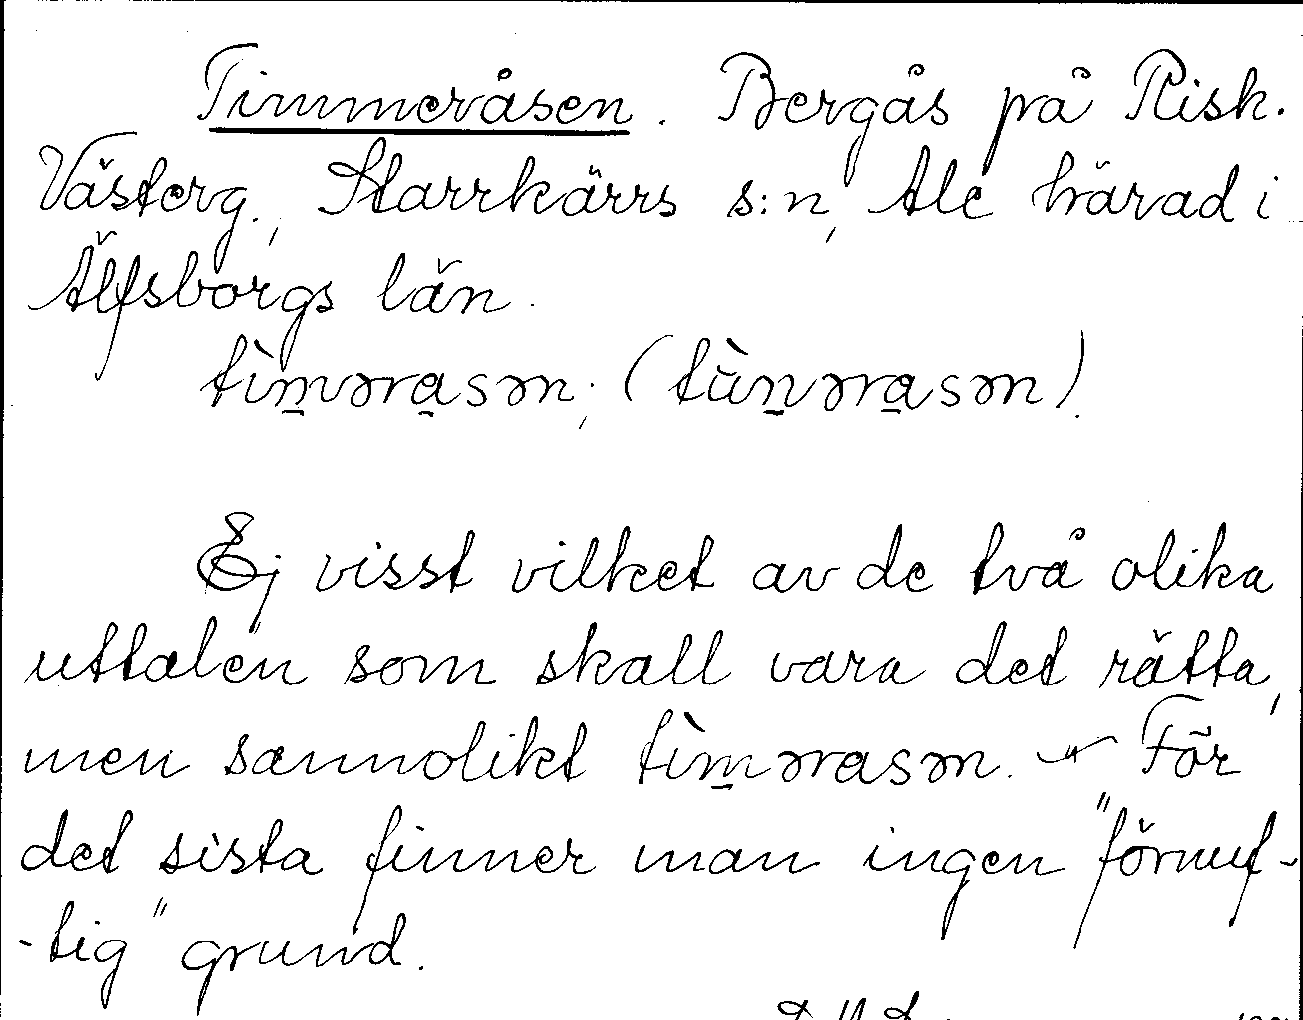 Timmeråsen. Bergås på Risk.
Västerg., Starrkärrs s:n, Ale härad i
Älfsborgs län.
tìm̱əra̱sən; (tùṉəra̱sən).
Ej visst vilket av de två olika
uttalen som skall vara det rätta,
men sannolikt tìm̱ərasən. För
det sista finner man ingen "förnuf-
-tig" grund.